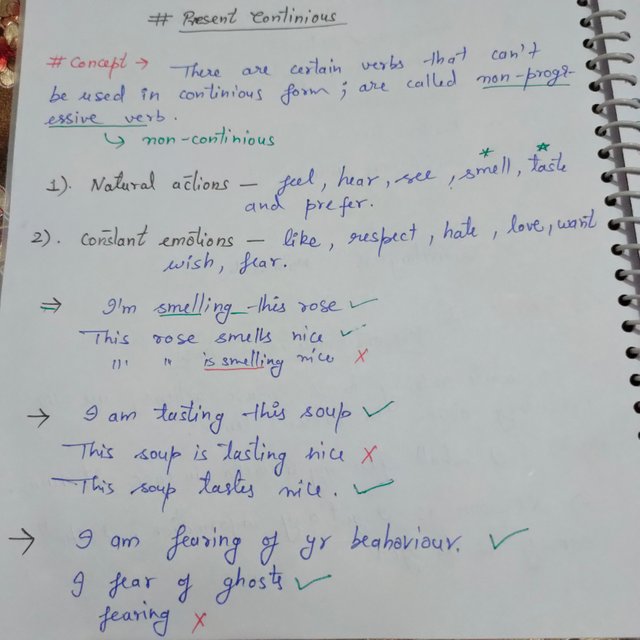 # Present Continious
# Concept → There are certain verbs that can't
be used in continious form ; are called non-progr-
essive verb.
↳ non-continious
1). Natural actions — feel, hear, see, smell, taste
and prefer.
2). Constant emotions — like, respect, hate, love, want
wish, fear.
⇒ I'm smelling this rose ✓
This rose smells nice ✓
"' " is smelling nice ✗
→ I am tasting this soup ✓
This soup is tasting nice ✗
This soup tastes nice. ✓
→ I am fearing of yr beahaviour. ✓
I fear of ghosts ✓
fearing ✗